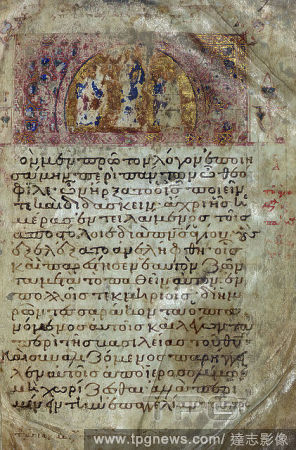 ὁν μὲν πρῶτον λόγον ἐποιη
σάμην περὶ πάντων ὦ θεό
φιλε ὧν ἤρξατο ὁ ις ποιεῖν
τε καὶ διδάσκειν ἄχρι ἧς ἡ
μέρας ἐντειλάμενος τοῖς
ἀποστόλοις διὰ ἁγίου οὓς
ἐξελέξατο ἀνελήφθη οἷς
καὶ παρέστησεν ἑαυτὸν ζῶν
τα μετὰ τὸ παθεῖν αὐτὸν ἐν
πολλοῖς τεκμηρίοις δι ἡμε
ρῶν τεσσαράκοντα ὀπτα
νόμενος αὐτοῖς καὶ λέγων τὰ
περὶ τῆς βασιλείας τοῦ θυ
καὶ συναλιζόμενος παρήγγει
λεν αὐτοῖς ἀπὸ ἱεροσολύμω
μὴ χωρίζεσθαι ἀλλὰ περι
μένειν τὴν ἐπαγγελίαν
www.tpgnews.com/ 達志影像